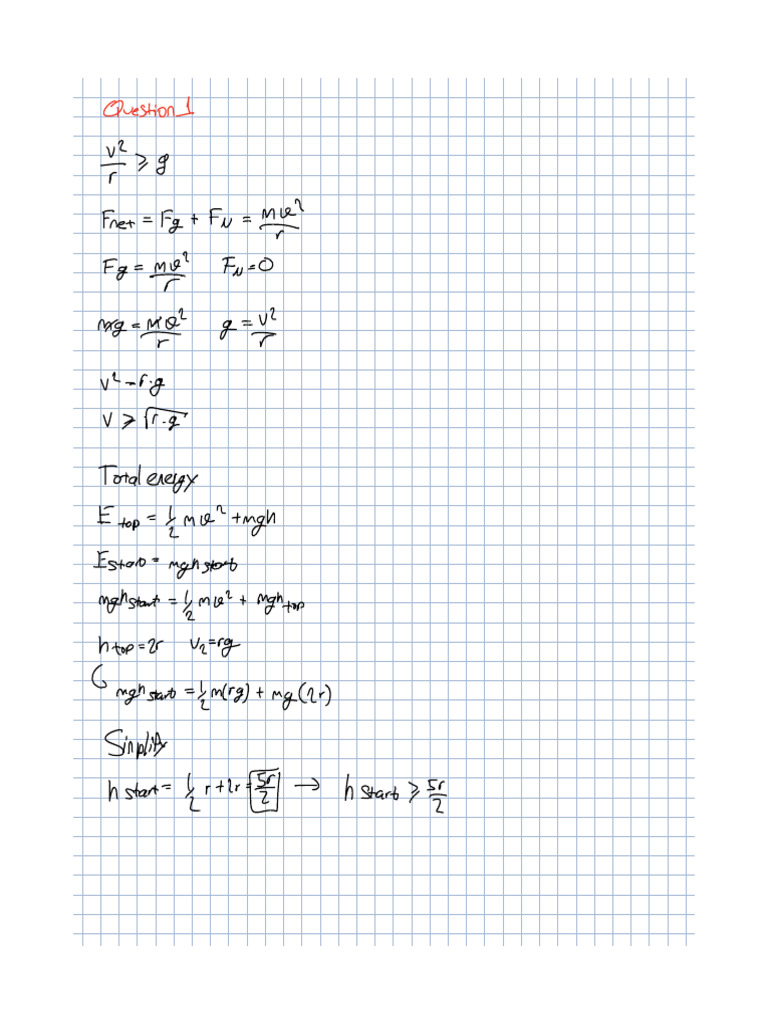 Question 1
v²/r ≥ g
Fnet = Fg + FN = mv²/r
Fg = mv²/r FN = 0
mg = mv²/r g = v²/r
v² = r·g
v ≥ √r·g
Total energy
E top = 1/2 mv² + mgh
E start = mgh start
mgh start = 1/2 mv² + mgh top
h top = 2r v₂ = rg
mgh start = 1/2 m(rg) + mg(2r)
Simplify
h start = 1/2 r + 2r = 5r/2 → h start ≥ 5r/2